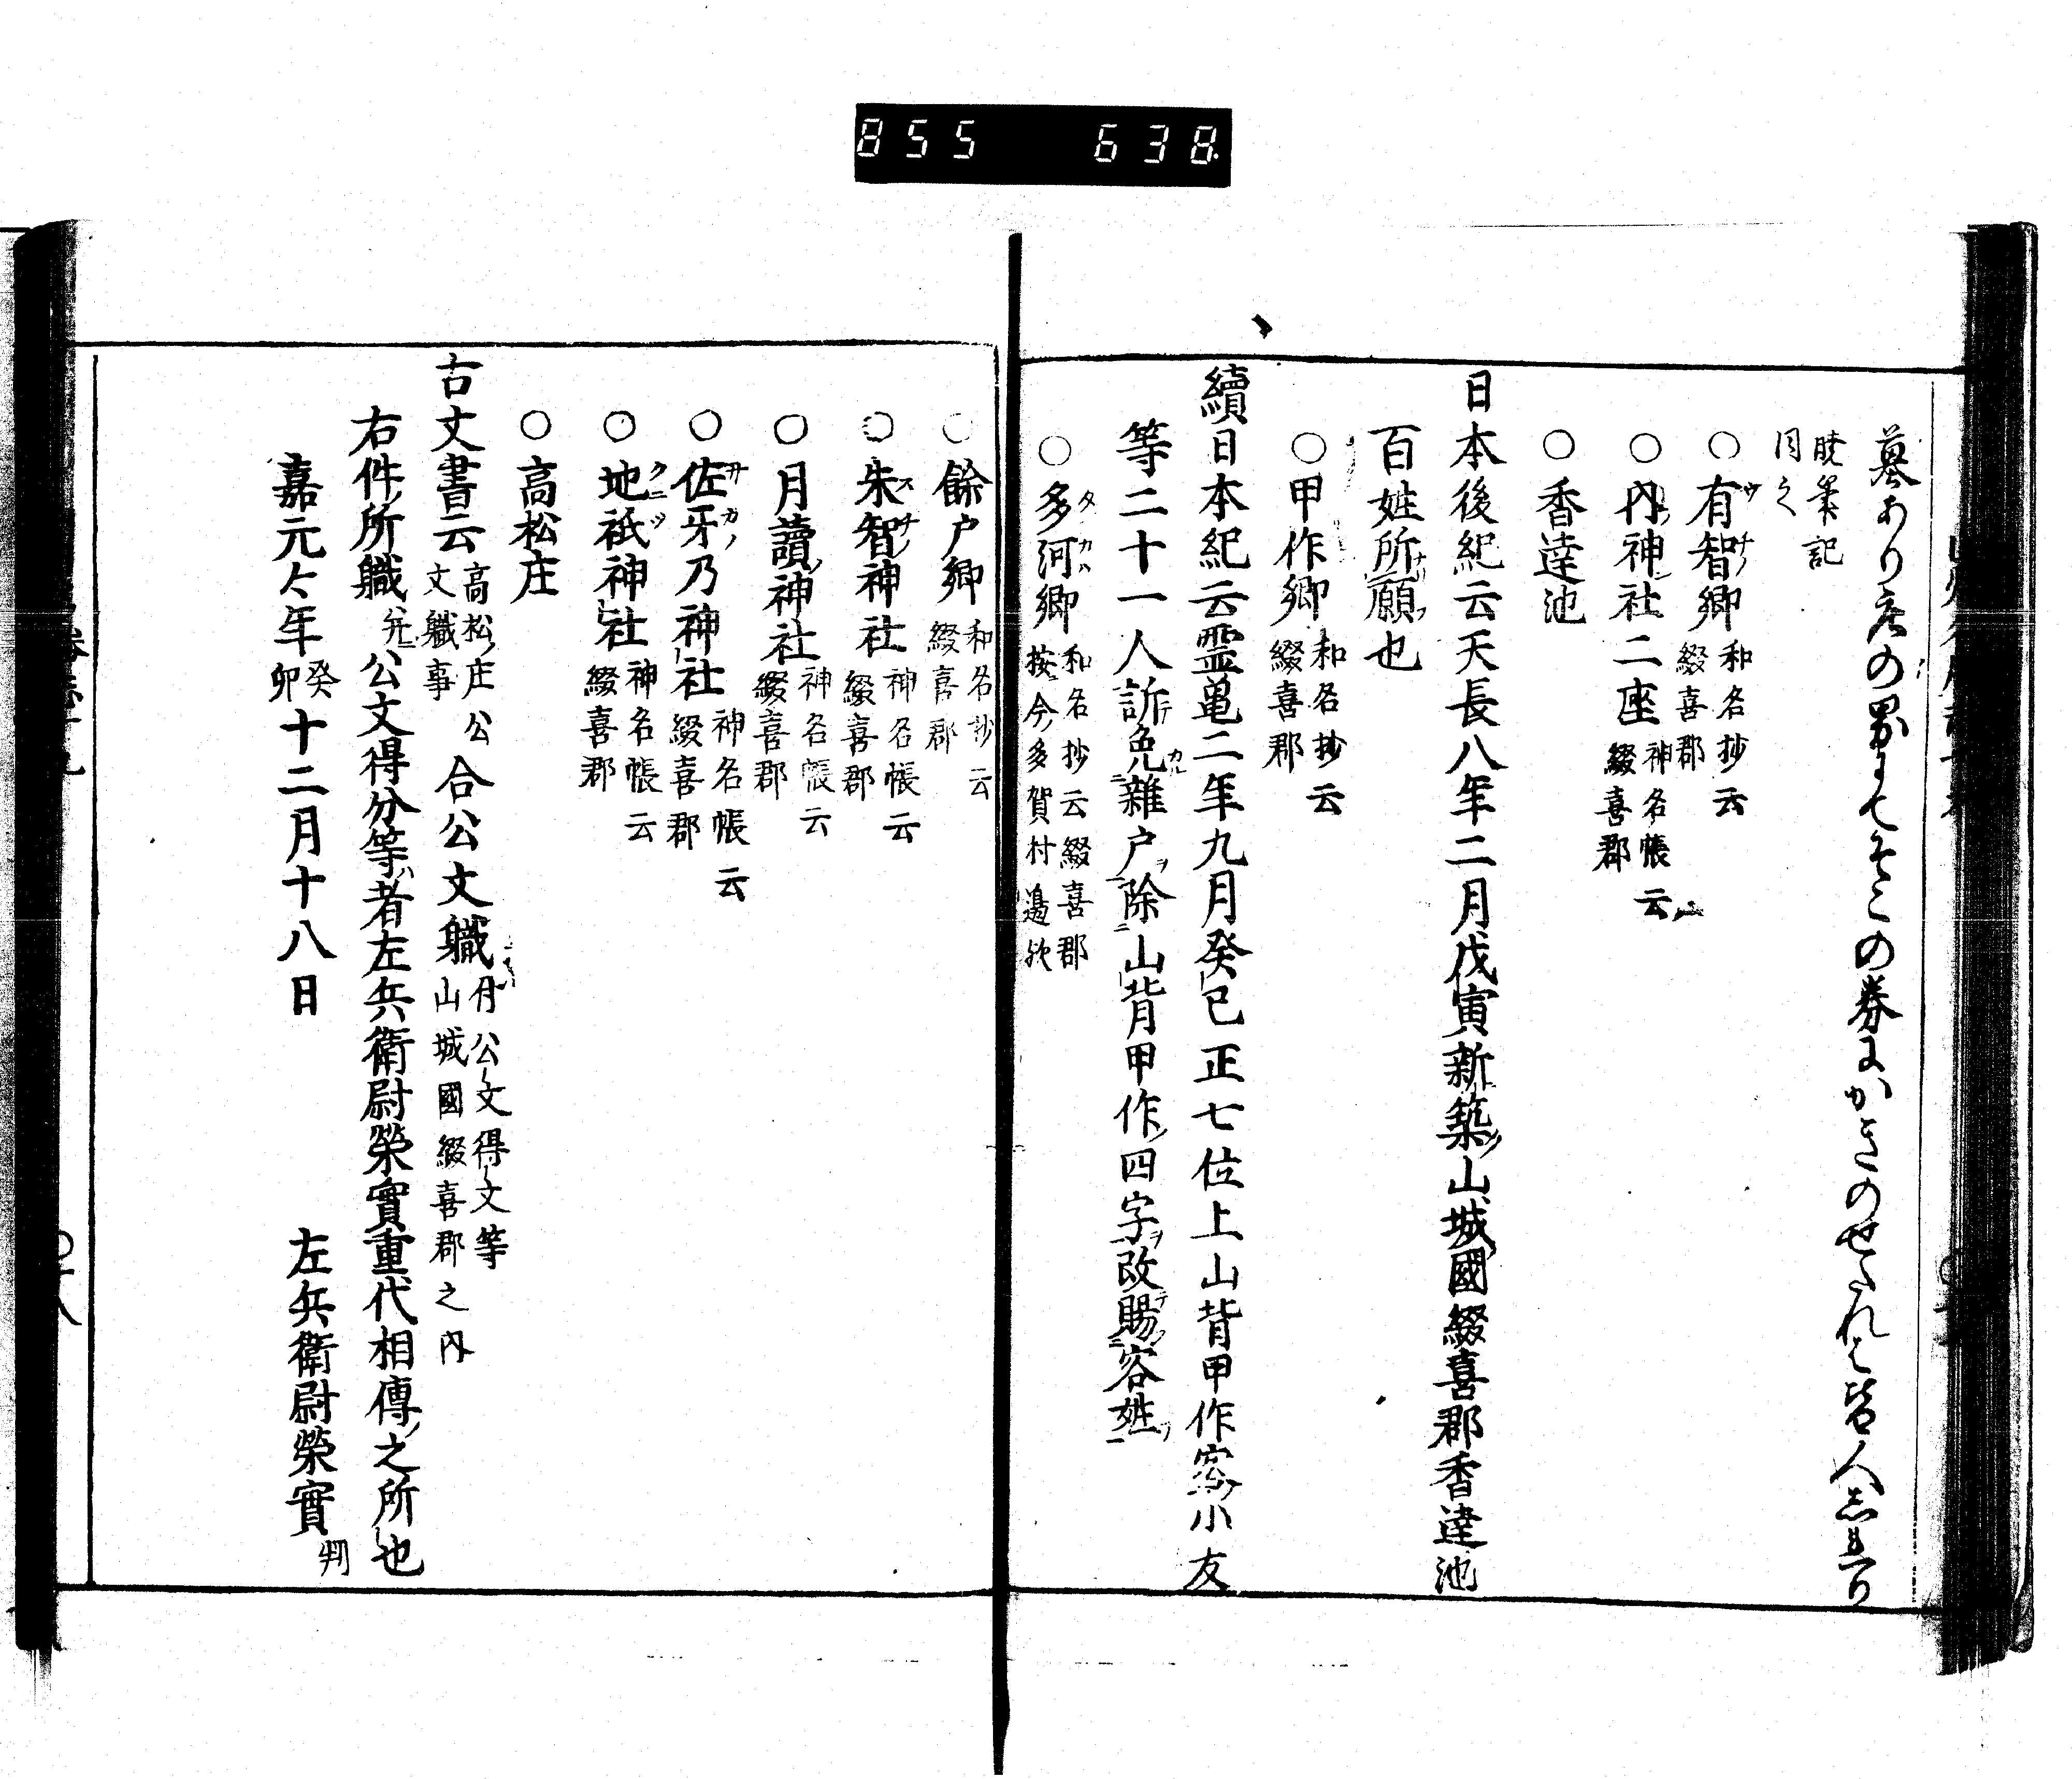 855 638
墓あり彦の墨にてそこの券にかきのせられと皆人志れり
暁筆記
同之
○有智郷 和名抄云
綴喜郡
○內神社二座 神名帳云
綴喜郡
○香達池
日本後紀云天長八年二月戊寅新築山城國綴喜郡香達池
百姓所願也
○甲作郷 和名抄云
綴喜郡
續日本紀云霊亀二年九月癸巳正七位上山背甲作客小友
等二十一人訴免雜戸除山背甲作四字改賜客姓
○多河郷 和名抄云綴喜郡
按今多賀村邊欤
○餘戸郷 和名抄云
綴喜郡
○朱智神社 神名帳云
綴喜郡
○月讀神社 神名帳云
綴喜郡
○佐牙乃神社 神名帳云
綴喜郡
○地祇神社 神名帳云
綴喜郡
○高松庄
古文書云 高松庄公
文職事 合公文職 丹公文得文等
山城國綴喜郡之内
右件所職并公文得分等者左兵衛尉榮實重代相傳之所也
嘉元々年癸卯十二月十八日 左兵衛尉榮實判